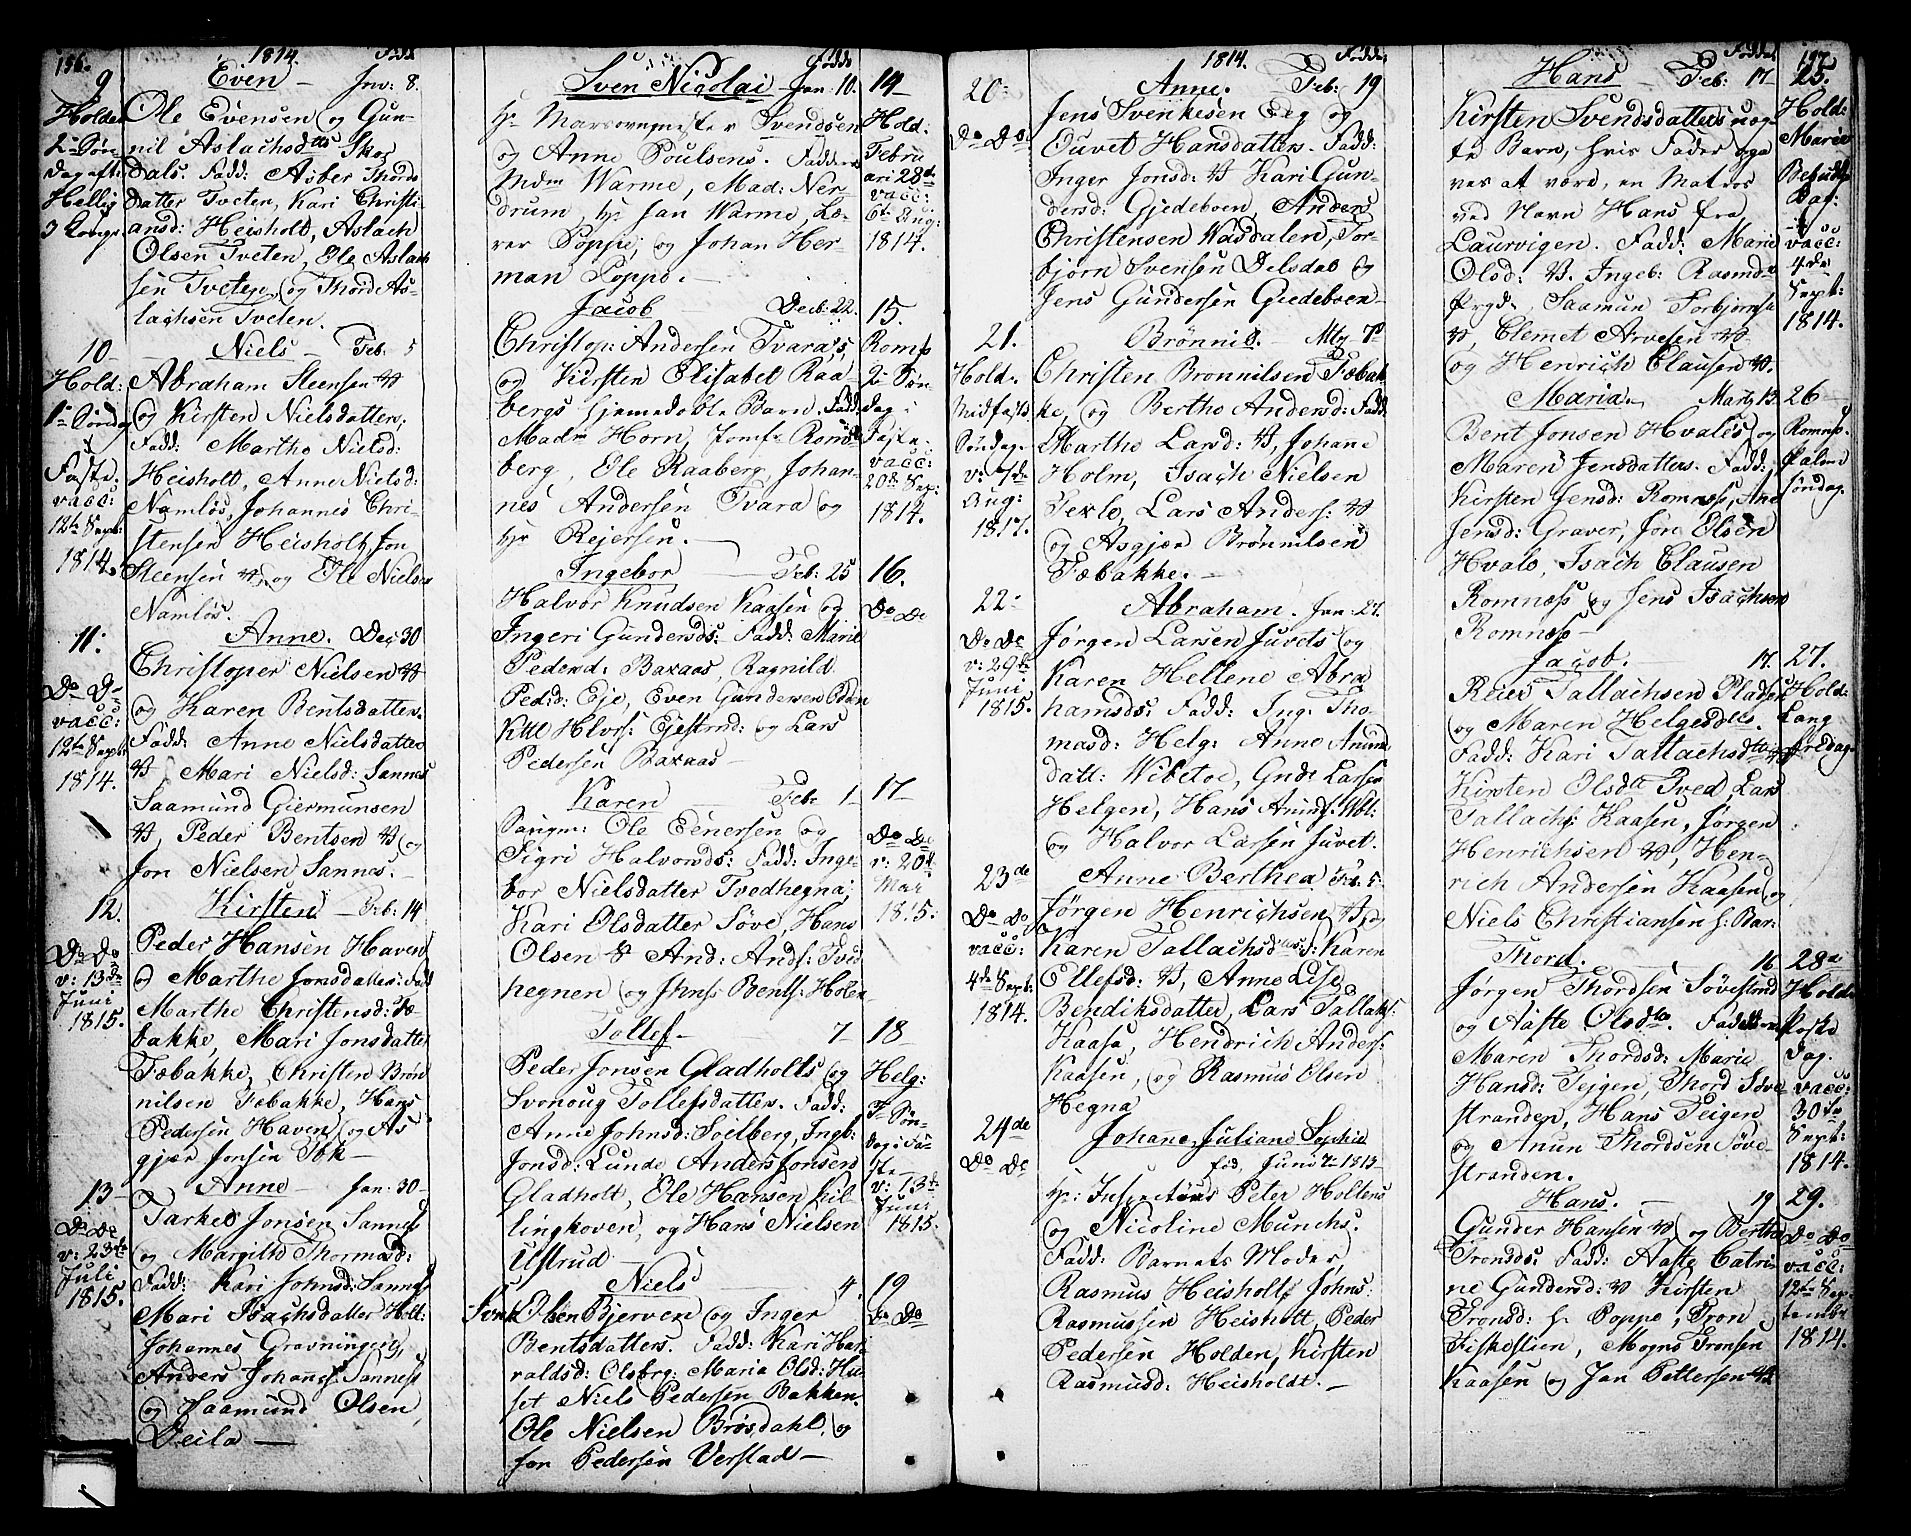 156.
1814.
Fødd
9
Even — Jnv: 8.
Holden
2den Søn
dag eft:
Hellig
3 Konge
Ole Evensen og Gun-
nil Aslachsdtrs Skor
dals. Fadd: Asber Thords
datter Tveten, Kari Christi-
ansd: Heisholt, Aslach
Olsen Tveten, Ole Aslach
sen Tveten, og Thord As-
lachsen Tveten.
10
Niels — Feb: 5
Hold:
1ste Søndag
i
Faste.
vacc:
12te Sept:
1814.
Abraham Steensen
og Kirsten Nielsdatter.
Fadd: Marthe Nielsd:
Heisholt, Anne Nielsd:
Namløs, Johannes Chri-
stensen Heisholt, Jon
Steensen og Ole Nielsen
Namløs.
11:
Anne. Dec: 30
Do Do
vacc:
12te Sept:
1814.
Christoper Nielsen
og Karen Bentsdatter.
Fadd: Anne Nielsdatter
Mari Nielsd: Sannes
Saamund Giermunsen
Peder Bentsen og
Jon Nielsen Sannes. —
12.
Kirsten — Feb: 14
Do Do
v: 13de
Juni
1815.
Peder Hansen Haven
og Marthe Jonsdatter: Fadd
Marthe Christensd: Fæ-
bakke, Mari Jonsdatter
Fæbakke, Christen Brøn
nilsen Fæbakke, Hans
Pedersen Haven og As
gjær Jonsen Bak —
13
Anne — Jan: 30
Do Do
v: 23de
Juli
1815.
Tarkel Jonsen Sannes
og Margith Thormosd:
Fadd: Kari Johnsd: Sannes
Mari Isachsdatter Holt:
Johannes Gravningen,
Anders Johans: Sannes
og Saamund Olsen
Deila —
Fødde
Sven Nicolai — Jan: 10.
14
Hold:
Febru
ari 28de
vacc:
6te Aug:
1814.
Hr Marsovnmester Svendsen
og Anne Poulsens. Faddere
Mdm Warme, Mad: Ner-
drum, Hr Jan Warme, Læ-
rer Poppe, og Johan Her-
man Poppe. —
Jacob — Decb: 22.
15.
Romns
2den Søn
dag i
Faste.
vacc:
20de Sep:
1814.
Christop: Andersen Tvara's,
og Kirsten Elisabet Raa
bergs hjemedøbte Barn. Fadd:
Madm Horn, Jomfr Romsk
berg, Ole Raaberg, Johan-
nes Andersen Tvara og
Hr Rejersen. —
Ingebor — Feb: 25
16.
Do Do
Halvor Knudsen Kaasen og
Ingeri Gundersds: Fadd: Marie
Pedersd: Baxaas, Ragnild
Pedsd: Eje, Even Gundersen
Kitil Hlvrs: Ejestrnd: og Lars
Pedersen Baxaas —
Karen — Feb: 1
17
Do Do
v: 20de
Mai
1815.
Saugm: Ole Eenersen og
Sigri Halvorsds: Fadd: Inge-
bor Nielsdatter Tvedhegna,
Kari Olsdatter Søve, Hans
Olsen And: Ands: Tved
hegnen og Jhns Bents: Holen
Tollef — 7
18
Helg:
1ste Søn-
dag i Fa-
ste
v: 13de
Juni
1815.
Peder Jonsen Gladholts og
Svonoug Tollefsdatters. Fadd:
Anne Johnsd: Solberg, Ingb:
Jonsd: Lunde Anders Jonsen
Gladholt, Ole Hansen Kil-
lingkoven, og Hans Nielsen
Ulstrud —
Niels — 4.
19
Do Do
Olsen Bjerven og Inger
Bentsdatters. Fadd: Kari Har-
valdsd: Olsbrg: Maria Olsd: Hu-
set Niels Pedersen Bakken.
Ole Nielsen Brøsdahl, og
Jon Pedersen Verstad —
1814.
Fødde
20
Anne. Feb: 19
Do Do
Jens Svenkesen Dag og
Duvet Hansdatters. Fadd:
Inger Jonsd: Kari Gun-
dersd: Gjedeboen, Anders
Christensen Wasdalen, Tor-
bjørn Svensen Delsdal og
Jens Gundersen Giedeboen
21.
Brønnil. — Mrtz 7de
Hold.
Midfaste
Søndag.
v: 7de
Aug:
1817.
Christen Brønnilsen Fæbak
ke, og Berthe Andersd: Fadd:
Marthe Larsd: Johane
Holm, Isach Nielsen
Lars Anders:
og Asgjær Brønnilsen
Fæbakke. —
22
Abraham. Jan: 27.
Do Do
v: 29de
Juni
1815.
Jørgen Larsen Juvets og
Karen Hellene Abra
hamsds: Fadd: Ing: Tho-
masd: Helg: Anne Anund
datt: Wibetoe, Gndr Larsen
Helgen, Hans Anunds: Wbt:
og Halvor Larsen Juvet.
23de
Anne Berthea Feb: 5
Do Do
vacc:
4de Sept:
1814.
Jørgen Henrichsen og
Karen Tallachsdtrs: Karen
Ellefsd: Anne Lise
Bendiksdatter, Lars Tallaks:
Kaasa, Hendrich Anders:
Kaasen, og Rasmus Olsen
Hegna
24de
Johanne Juliane Sophie
Do Do
fød, Juni 7de 1813
Hr: Inspecteur Peter Holtens
og Nicoline Munchs.
Fadd: Barnets Moder,
Rasmus Heisholt, Johns:
Rasmussen Heisholt, Peder
Pedersen Holden, Kirsten
Rasmusd: Heisholdt. —
Fødde
157.
Hans — Feb: 17
25.
Hold:
Mariæ
Bebudls
Dag:
vacc:
4de
Sept:
1814.
Kirsten Svendsdatters uæg-
te Barn, hvis Fader opga
ves at være, en Matros
ved Navn Hans fra
Laurvigen. Fadd: Marie
Olsd: Ingeb: Rasmd:
Saamun Torbjørns:
Clemet Arvesen
og Henrich Clausen
Maria. Martz 13
26
Romns.
Palme
søndag.
Bent Jonsen Hvales og
Maren Jensdatters. Fadd:
Kirsten Jensd: Romnes, Ane
Jensd: Graver, Jon Olsen
Hvale, Isach Clausen
Romnes og Jens Isachsen
Romnes —
Jacob. — 17.
27.
Hold:
Lang
fredag.
Reier Tallachsen Pladsen
og Maren Helgesdtrs.
Fadd: Kari Tallachsdtr
Kirsten Olsdtr Tved Lars
Tallachs: Kaasen, Jørgen
Henrichsen Hen-
rich Andersen Kaasen og
Niels Christiansen
Thord. — 16
28de
Hold:
Paske
dag.
vacc:
30te
Sept:
1814.
Jørgen Thordsen Søvestrand
og Aaste Olsdtr. Faddere
Maren Thordsd: Maria
Hansd: Teigen, Thord Søve
stranden, Hans Teigen
og Anun Thordsen Søve-
stranden.
Hans. — 19
29.
Do Do
vacc:
12te Sep
tember
1814.
Gunder Hansen og Berthe
Tronds: Fadd: Aaste Catri-
ne Gundersd: Kirsten
Tronsd: Hr Poppe, Tron
Fiskestien, Mogns Tronsen
Kaasen og Jan Pettersen